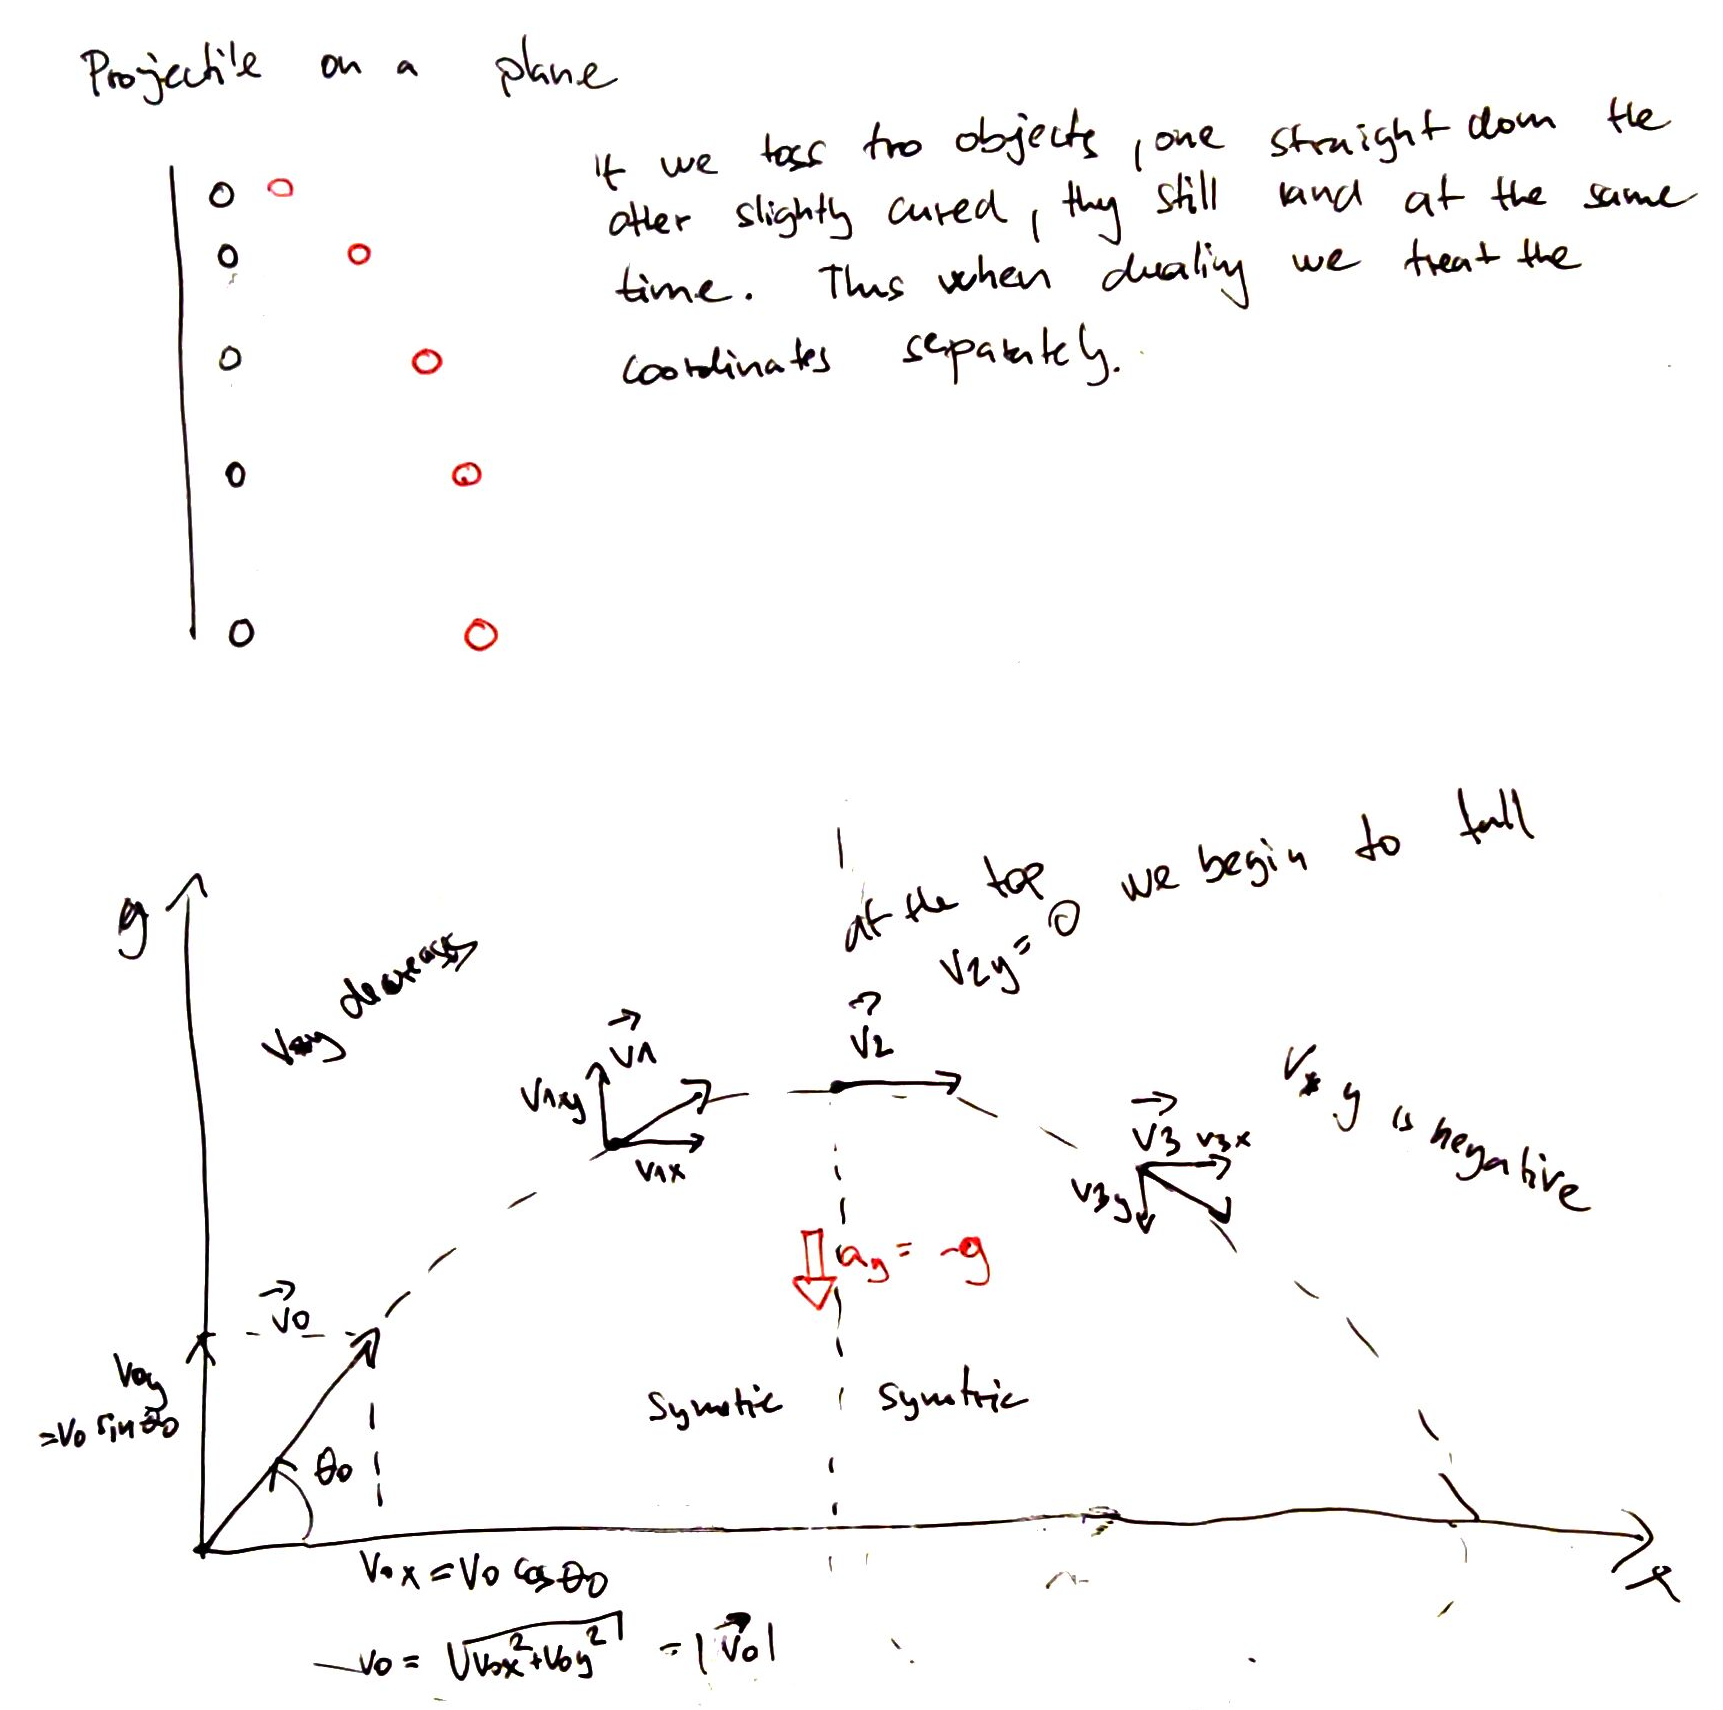 Projectile on a plane
If we toss two objects, one straight down the
other slightly cured, they still land at the same
time. Thus when dealing we treat the
coordinates separately.
at the top we begin to fall
V2y = 0
y
Vy decreases
V1
V1y
V1x
V2
V3 V3x
V3y
Vy is negative
ay = -g
V0
V0y
= V0 sin θ0
θ0
Symtric Symtric
V0x = V0 cos θ0
x
V0 = √V0x² + V0y² = |V0|